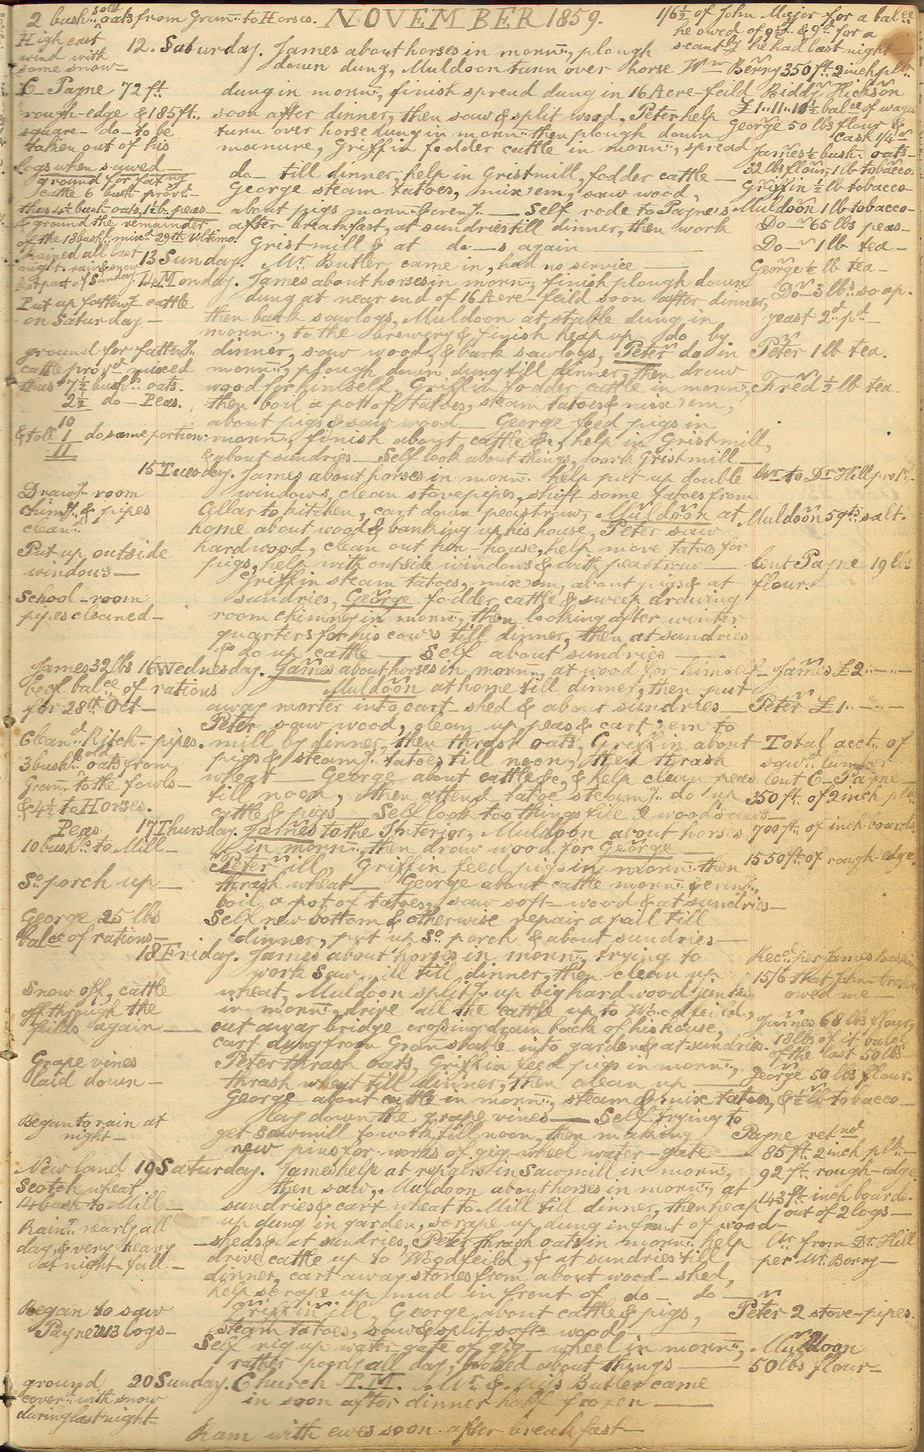 2 bush:ls old oats from Gran:y to Horses. NOVEMBER 1859.
1/6½ of John Major for a bal:ce
he owed of 9½d & 9d for a
scant he had last night
High east
wind with
some snow
C- Payne 72 ft
rough-edge & 185 ft.
square- do- to be
taken out of his
logs when sawed
ground for fatting
cattle 6 bush: prov:r
thus 4½ bush: oats, 1½ b. peas
& ground the remainder
of the 13 bush: mix: 29th Ultimo.
12. Saturday. James about horses in morn:g, plough
down dung, Muldoon turn over horse
dung in morn:g, finish spread dung in 16 Acre-feild
soon after dinner, then saw & split wood, Peter help
turn over horse dung in morn:g then plough down
manure, Griffin fodder cattle in morn:g, spread
do- till dinner, help in Gristmill, fodder cattle
George steam tatoes, mix 'em, saw wood
about pigs morn: & even:g. Self rode to Payne's
after breakfast, at sundries till dinner, then work
Gristmill & at do-s again
W:m Berry 350 ft. 2 inch pl:k
Biddy Hickson
£1..11..10½ bal:ce of wages
George 50 lbs flour &
Cash 1/4
James ½ bush: oats-
32 lbs flour, 1 lb tobacco
Griffin ½ lb tobacco
Muldoon 1 lb tobacco-
Do- 65 lbs peas-
Do- 1 lb tea-
Rained all last
night, rain & snow
great part of Sunday
13 Sunday. Mr. Butler came in, had no service
George ½ lb tea-
14 Monday. James about horses in morn:g, finish plough down
dung at near end of 16 Acre-feild soon after dinner,
then bark sawlogs, Muldoon at stable dung in
morn:g, to the brewery & finish heap up do by
dinner, saw wood & bark sawlogs, Peter do in
morn:g, plough down dung till dinner, then draw
wood for himself Griffin fodder cattle in morn:g,
then boil a pot of tatoes, steam tatoes & mix 'em,
about pigs & saw wood George feed pigs in
morn:g, finish about cattle &c, help in Gristmill,
& about sundries Self look about things, work Gristmill
Put up fatten:g cattle
on Saturday
ground for fatten:g
cattle prov:r mixed
thus 7½ bush:ls oats.
2½ do- Peas.
10
& toll 1 do same portion
11
Do- 3 lbs soap.
yeast 2d p:d
Peter 1 lb tea.
Fred ½ lb tea.
15 Tuesday. James about horses in morn:g help put up double
windows, clean stovepipes, shift some tatoes from
Cellar to kitchen, cart down peastraw, Muldoon at
home about wood & banking up his house, Peter saw
hardwood, clean out hen-house, help move tatoes for
pigs, help with outside windows & with peastraw
Griffin steam tatoes, mix 'em, about pigs & at
sundries, George fodder cattle & sweep drawing
room chimney in morn:g, then looking after winter
quarters for his cows till dinner, then at sundries
& do up cattle Self about sundries
Draw:g room
chim:y & pipes
clean:d
Put up outside
windows
School-room
pipes cleaned-
Wr to Dr Hill
Muldoon 59 lbs salt.
lent Payne 19 lbs
flour.
James 32 lbs
beef bal:ce of rations
for 28th Oct-
16 Wednesday. James about horses in morn:g, at wood for himself
Muldoon at home till dinner, then put
away morter into cart-shed & about sundries
Peter saw wood, clean up peas & cart 'em to
mill by dinner, then thrash oats, Griffin about
pigs & steam:g tatoes till noon, then thrash
wheat George about cattle &c, & help clean peas
till noon, then attend tatoe steam:g do up
cattle & pigs Self look too things till
James £2
Peter £1
Clean:d Kitch:n pipes.
3 bush:ls old oats from
Gran:y to the fowls-
& 4½ to Horses.
Total acct. of
saw:d lumber
lent C- Payne
350 ft. of 2 inch pl:k
700 ft. of inch boards
1550 ft of rough-edge
Peas
10 bush:ls to Mill
So porch up
George 25 lbs
bal:ce of rations-
17 Thursday. James to the Interior, Muldoon about horses
in morn:g, then draw wood for George
Peter ill Griffin feed pigs in morn:g then
thrash wheat George about cattle morn:g & even:g,
boil a pot of tatoes, saw soft-wood & at sundries
Self new bottom & otherwise repair a pail till
dinner, put up So porch & about sundries
18 Friday. James about horses in morn:g, trying to
work Sawmill till dinner, then clean up
wheat, Muldoon split:g up big hard-wood
in morn:g, drive all the cattle up to Woodfeild,
cut away bridge crossing drain back of his house,
cart dung from Gran: stable into garden & at sundries
Peter thrash oats, Griffin feed pigs in morn:g,
thrash wheat till dinner, then clean up
George about cattle in morn:g, steam & mix tatoes,
lay down the grape vines Self trying to
get Sawmill to work till noon, then making
new pins for works of gig-wheel water-gate
Snow off, cattle
off through the
feilds again
Grape vines
laid down
Begun to rain at
night
Rec:d per James
15/6 that John
owed me
James 68 lbs flour,
18 lbs of it bal:ce
of the last 50 lbs-
George 50 lbs flour.
& ½ lb tobacco
Payne ret:nd
85 ft. 2 inch pl:k-
92 ft. rough-edge
143 ft. inch board.
out of 2 logs
New land
Scotch wheat
14 bush: to Mill
Rain:g nearly all
day & very heavy
at night-fall-
Began to saw
Payne's 13 logs-
19 Saturday. James help at repairs in Sawmill in morn:g,
then saw, Muldoon about horses in morn:g, at
sundries & cart wheat to Mill till dinner, then heap
up dung in garden, scrape up dung in front of wood-
sheds & at sundries, Peter thrash oats in morn:g help
drive cattle up to Woodfeild, & at sundries till
dinner, cart away stones from about wood-shed,
help scrape up mud in front of do- do-
Griffin ill, George about cattle & pigs,
steam tatoes, saw & split soft-wood
Self rig up water-gate of gig-wheel in morn:g,
rather poorly all day, looked about things
Wr from Dr. Hill
per Wr. Berry
Peter 2 stove-pipes.
Muldoon
50 lbs flour
ground
cover:d with snow
during last night
20 Sunday. Church P.M. Mr & Mrs Butler came
in soon after dinner half frozen
Ram with ewes soon after breakfast